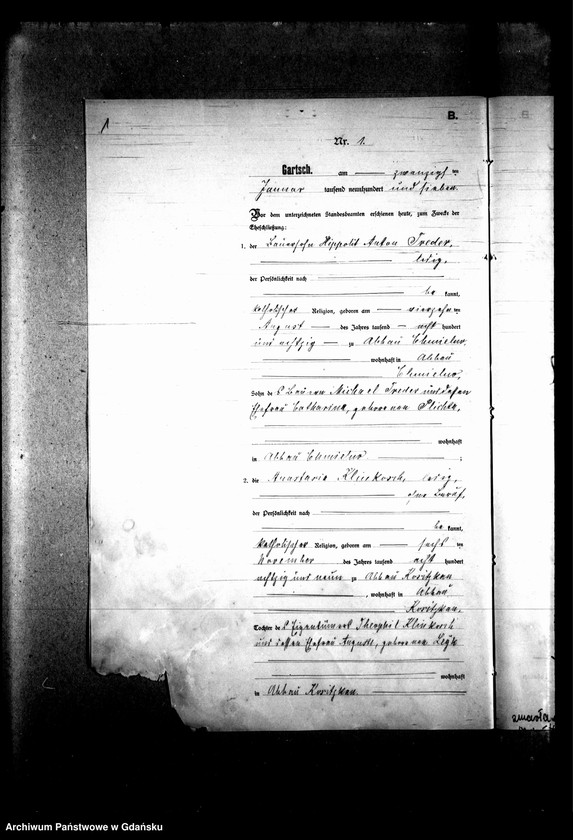 1
B.
Nr. 1.
Gartsch. am zwanzigsten
Januar tausend neunhundert und sieben.
Vor dem unterzeichneten Standesbeamten erschienen heute, zum Zwecke der
Eheschließung:
1. der Bauersohn Hippolit Anton Treder,
ledig,
der Persönlichkeit nach
be kannt,
katholischer Religion, geboren am vierzehn ten
August des Jahres tausend acht hundert
und achtzig zu Abbau Chmielno,
wohnhaft in Abbau
Chmielno,
Sohn des Bauern Michael Treder und dessen
Ehefrau Catharina, geborenen Plichta,
wohnhaft
in Abbau Chmielno ;
2. die Anastasia Klinkosch, ledig,
ohne Beruf,
der Persönlichkeit nach
be kannt,
katholischer Religion, geboren am sechs ten
November des Jahres tausend acht hundert
achtzig und neun zu Abbau
, wohnhaft in Abbau
Tochter des Eigentümers Theophil Klinkosch
und dessen Ehefrau Auguste, geborenen
wohnhaft
in Abbau
zmarła
Archiwum Państwowe w Gdańsku